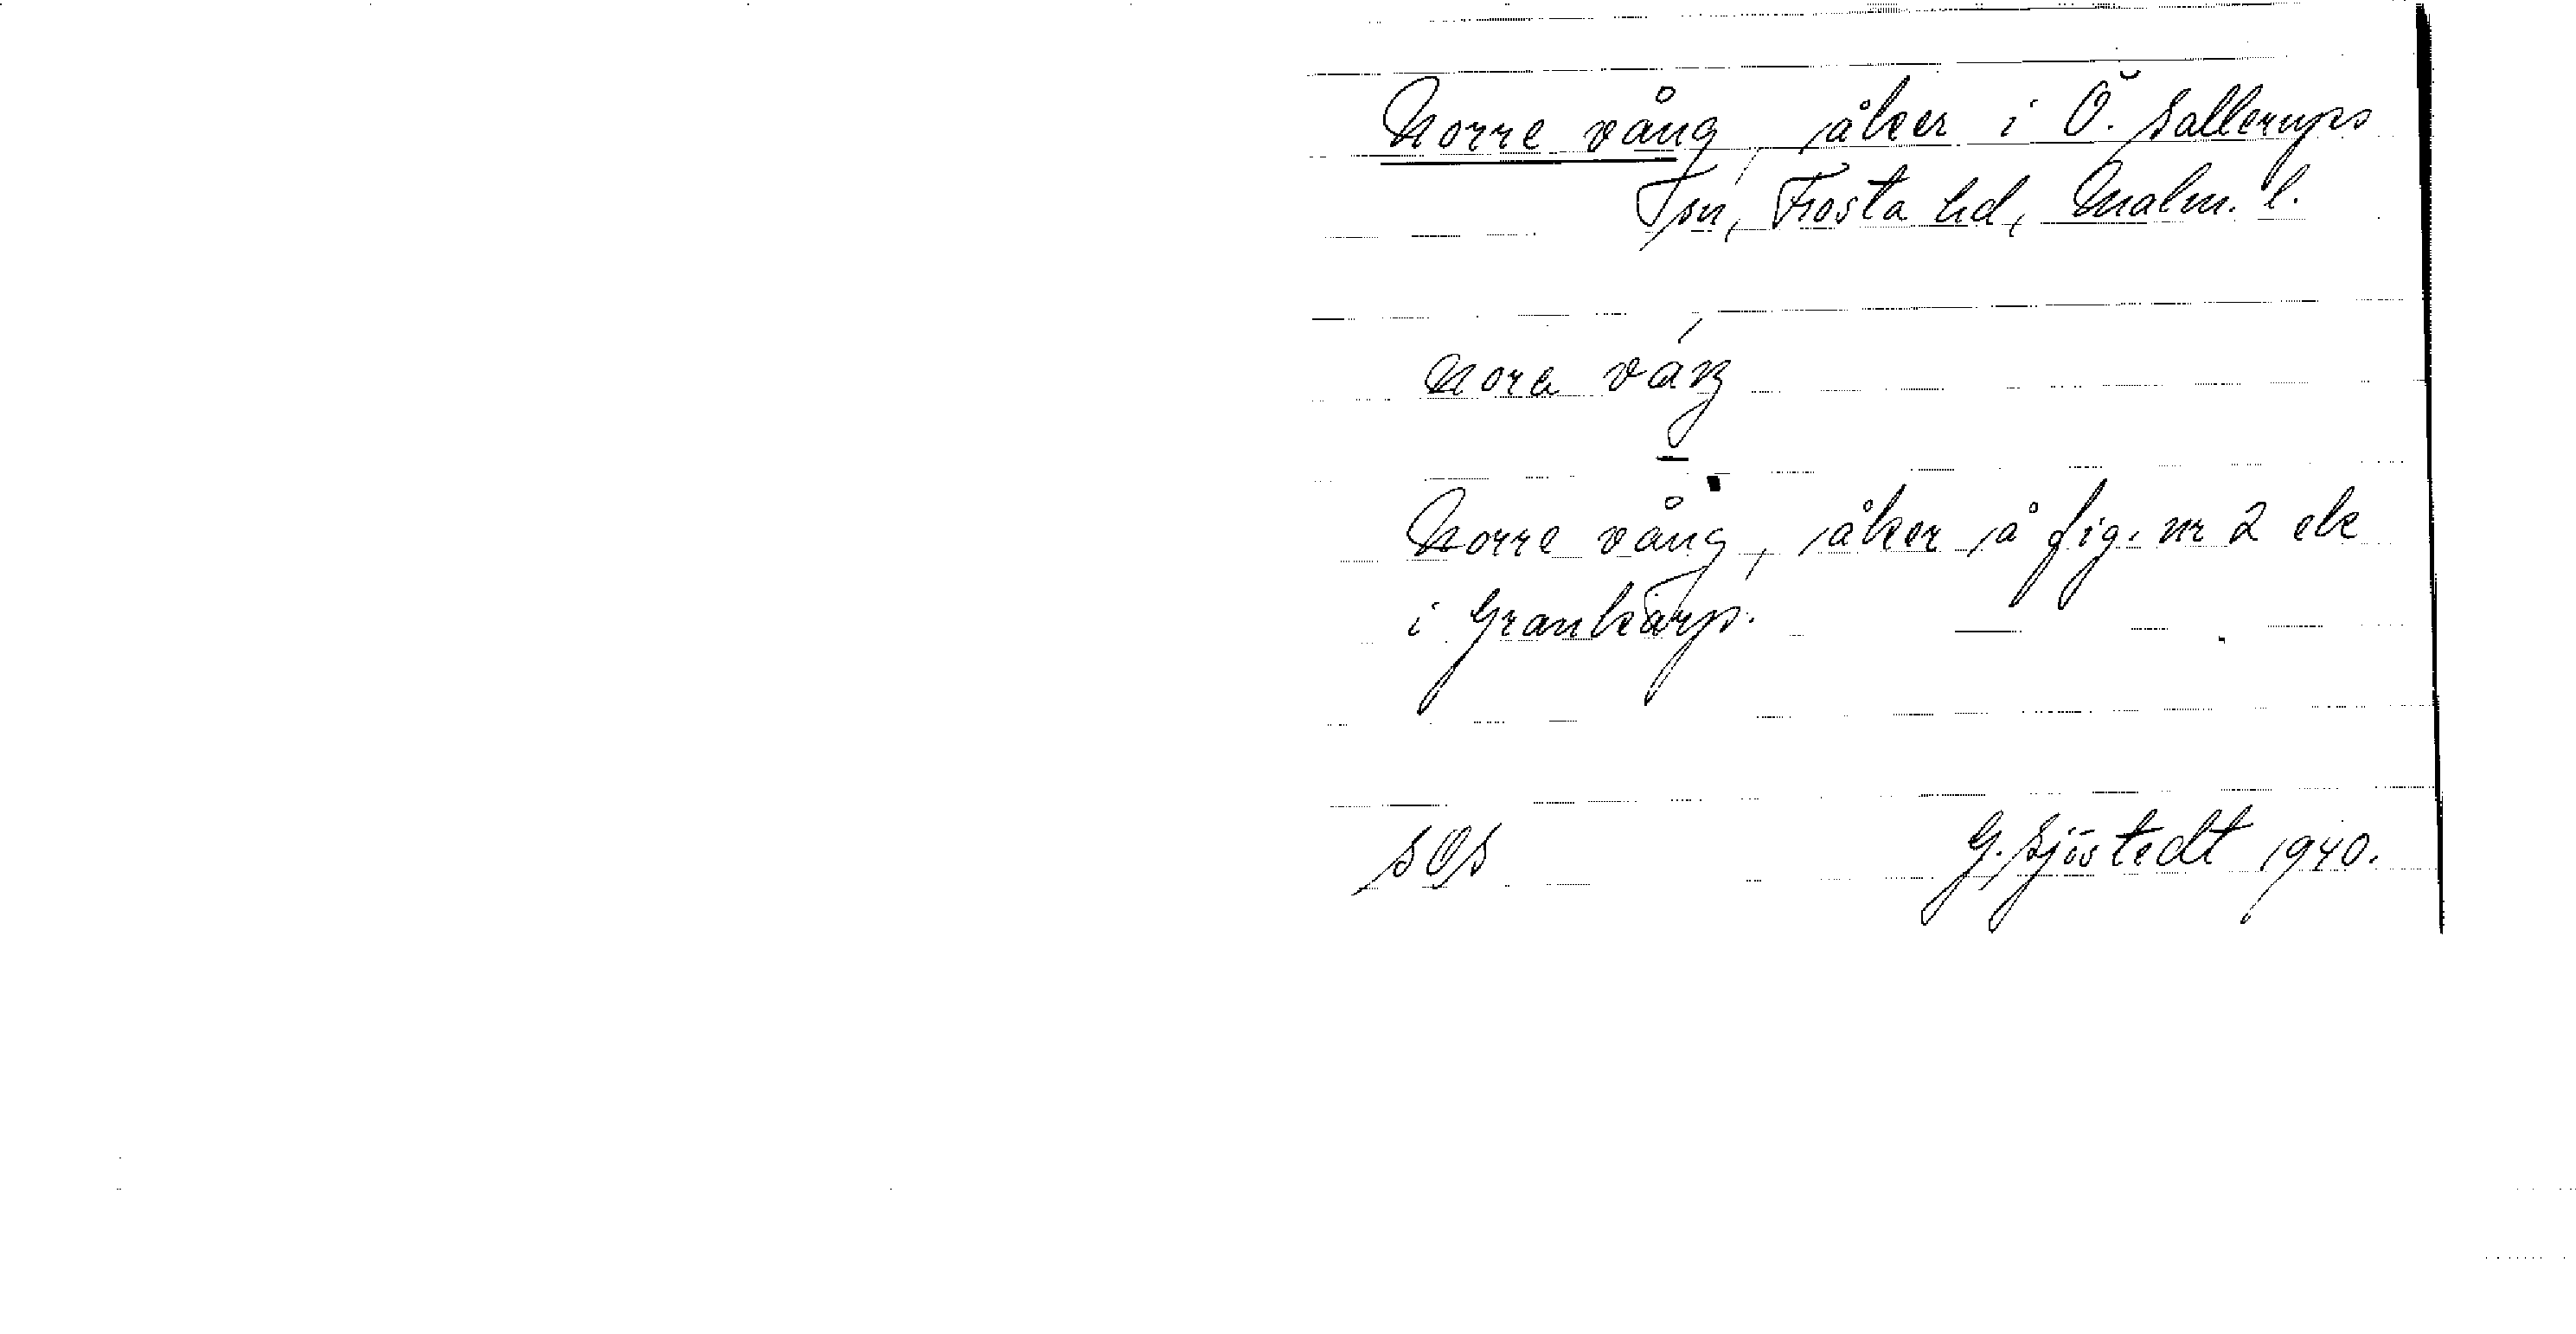 Norre vång, åker i Ö. Sallerups
sn, Frosta hd, Malm. l.
norə váŋ
Norre vång, åker å fig. nr 2 ek
i Grankärp.
SOS G. Sjöstedt 1940.